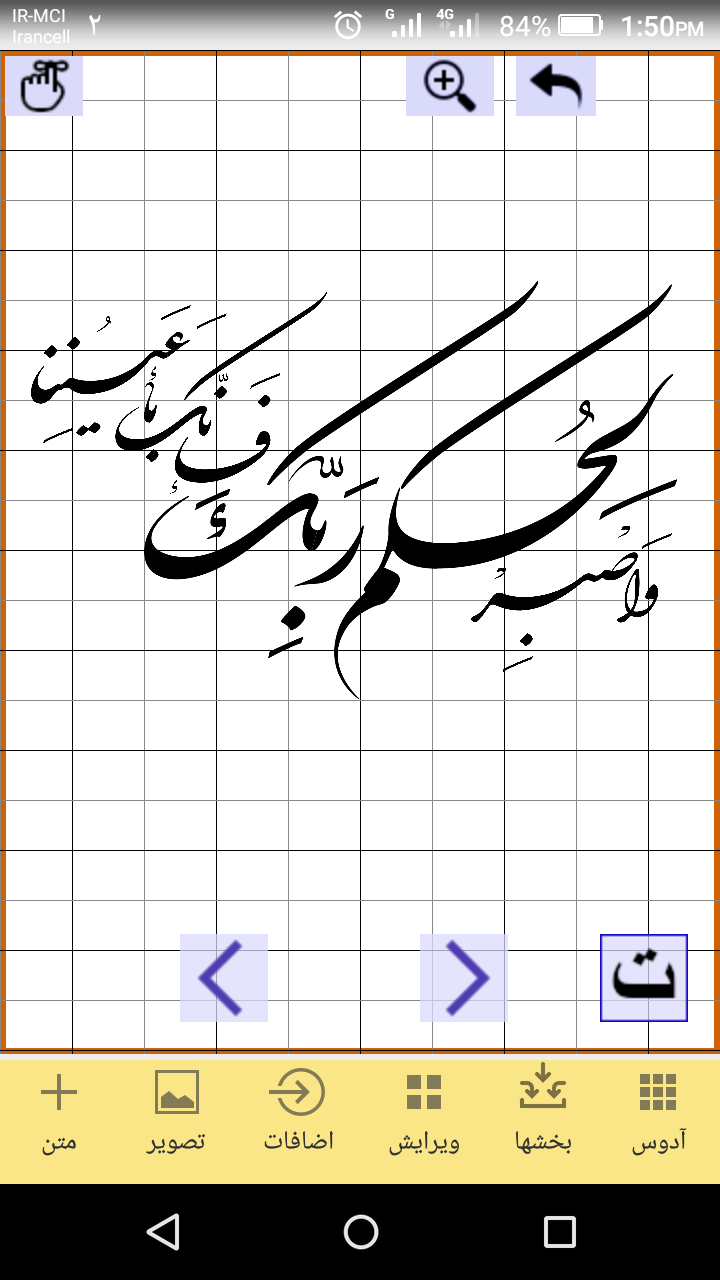 IR-MCI
Irancell
۲
G
4G
84%
1:50PM
وَاصْبِرْ لِحُكْمِ رَبِّكَ فَإِنَّكَ بِأَعْيُنِنَا
ت
آدوس
بخشها
ویرایش
اضافات
تصویر
متن